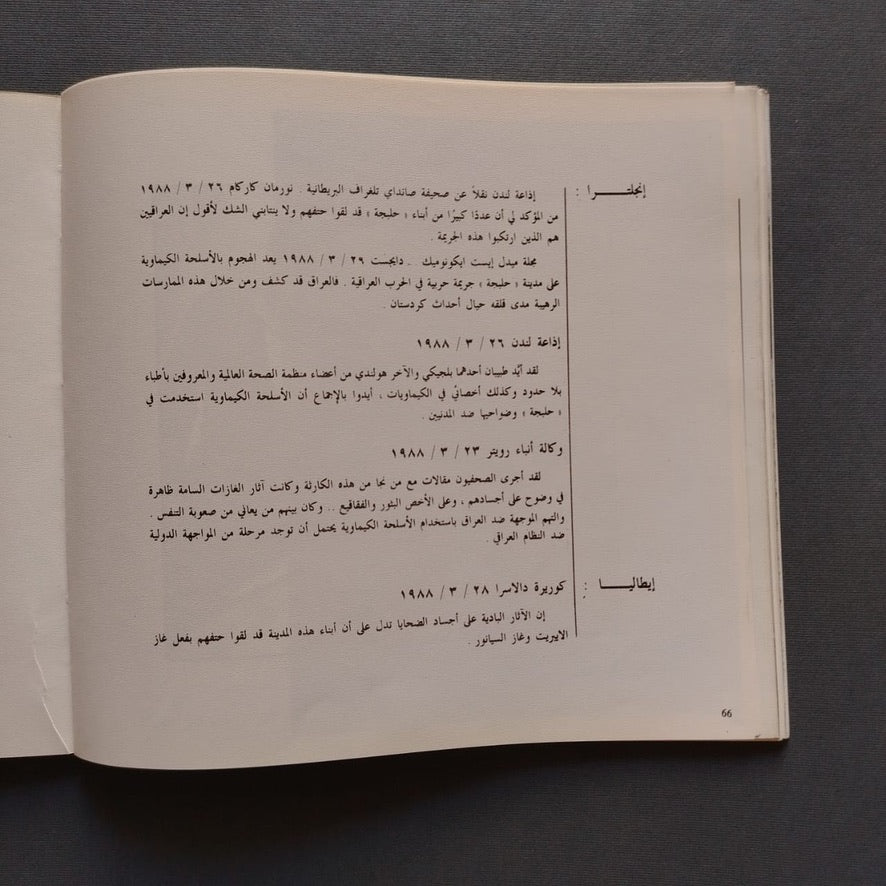 إنجلترا :
إذاعة لندن نقلاً عن صحيفة صانداي تلغراف البريطانية . نورمان كاركام ٢٦ / ٣ / ١٩٨٨
من المؤكد لي أن عددًا كبيرًا من أبناء « حلبجة » قد لقوا حتفهم ولا ينتابني الشك لأقول إن العراقيين
هم الذين ارتكبوا هذه الجريمة .
مجلة ميدل إيست ايكونوميك . دايجست ٢٩ / ٣ / ١٩٨٨ يعد الهجوم بالأسلحة الكيماوية
على مدينة « حلبجة » جريمة حربية في الحرب العراقية . فالعراق قد كشف ومن خلال هذه الممارسات
الرهيبة مدى قلقه حيال أحداث كردستان .
إذاعة لندن ٢٦ / ٣ / ١٩٨٨
لقد أيّد طبيبان أحدهما بلجيكي والآخر هولندي من أعضاء منظمة الصحة العالمية والمعروفين بأطباء
بلا حدود وكذلك أخصائي في الكيماويات ، أيدوا بالإجماع أن الأسلحة الكيماوية استخدمت في
« حلبجة » وضواحيها ضد المدنيين .
وكالة أنباء رويتر ٢٣ / ٣ / ١٩٨٨
لقد أجرى الصحفيون مقالات مع من نجا من هذه الكارثة وكانت آثار الغازات السامة ظاهرة
في وضوح على أجسادهم ، وعلى الأخص البثور والفقاقيع .. وكان بينهم من يعاني من صعوبة التنفس .
والتهم الموجهة ضد العراق باستخدام الأسلحة الكيماوية يحتمل أن توجد مرحلة من المواجهة الدولية
ضد النظام العراقي .
إيطاليا :
كوريرة دالاسرا ٢٨ / ٣ / ١٩٨٨
إن الآثار البادية على أجساد الضحايا تدل على أن أبناء هذه المدينة قد لقوا حتفهم بفعل غاز
الايبريت وغاز السيانور .
66